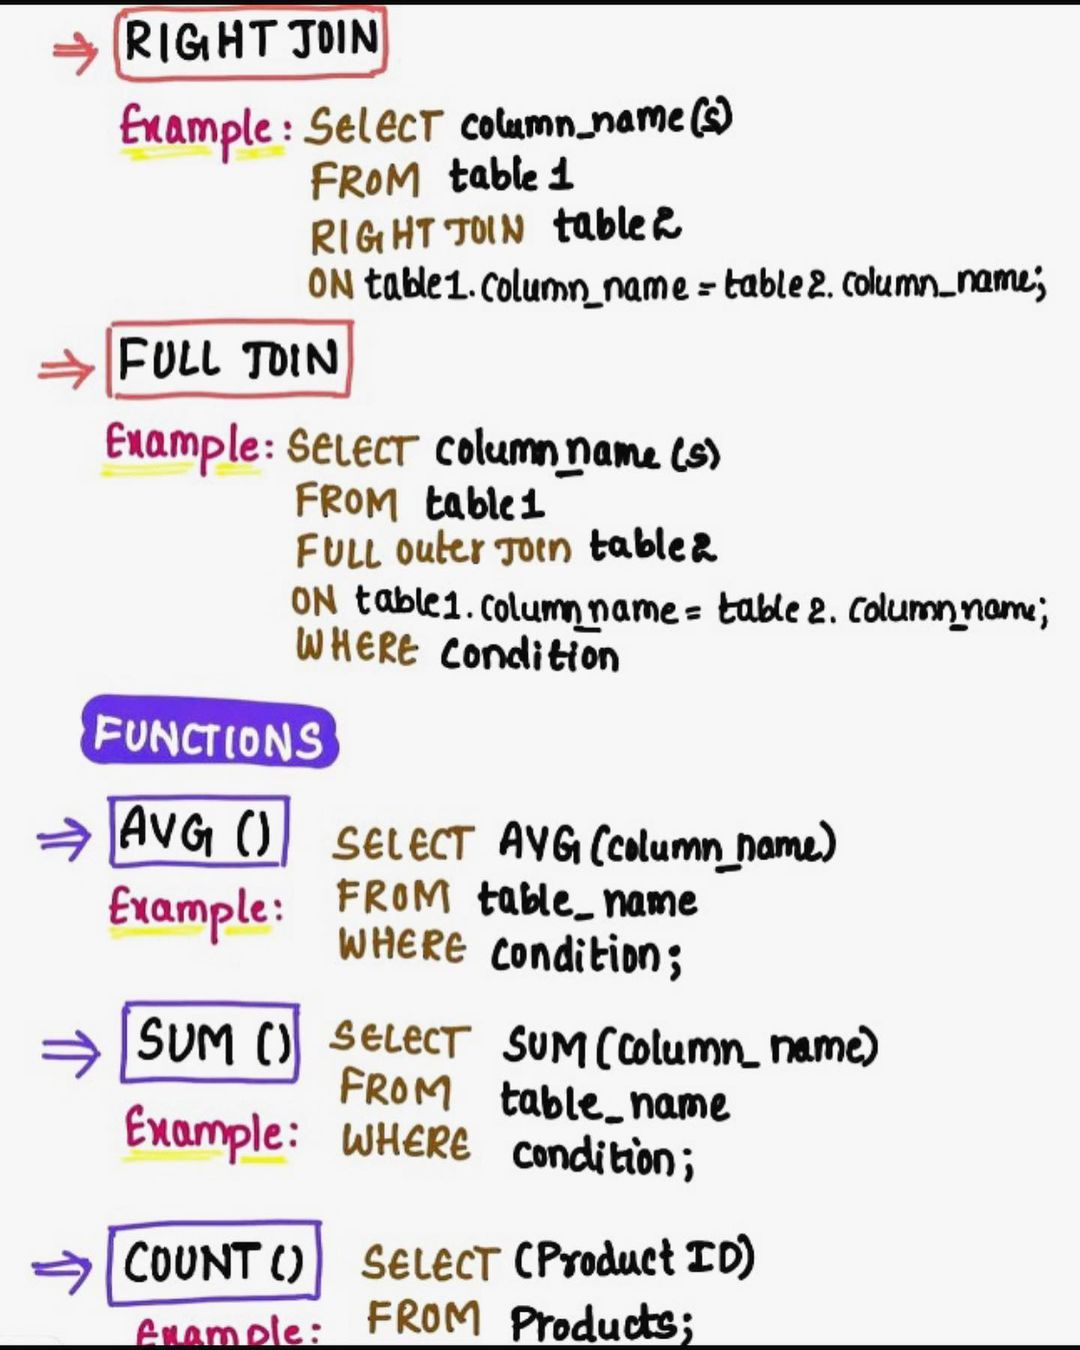 ⇒ RIGHT JOIN
Example: SELECT column_name(s)
FROM table1
RIGHT JOIN table2
ON table1.column_name = table2.column_name;
⇒ FULL JOIN
Example: SELECT column_name(s)
FROM table1
FULL outer JOIN table2
ON table1.column_name = table2.column_name;
WHERE condition
FUNCTIONS
⇒ AVG () SELECT AVG(column_name)
Example: FROM table_name
WHERE condition;
⇒ SUM () SELECT SUM(column_name)
FROM table_name
Example: WHERE condition;
⇒ COUNT () SELECT (Product ID)
Example: FROM Products;